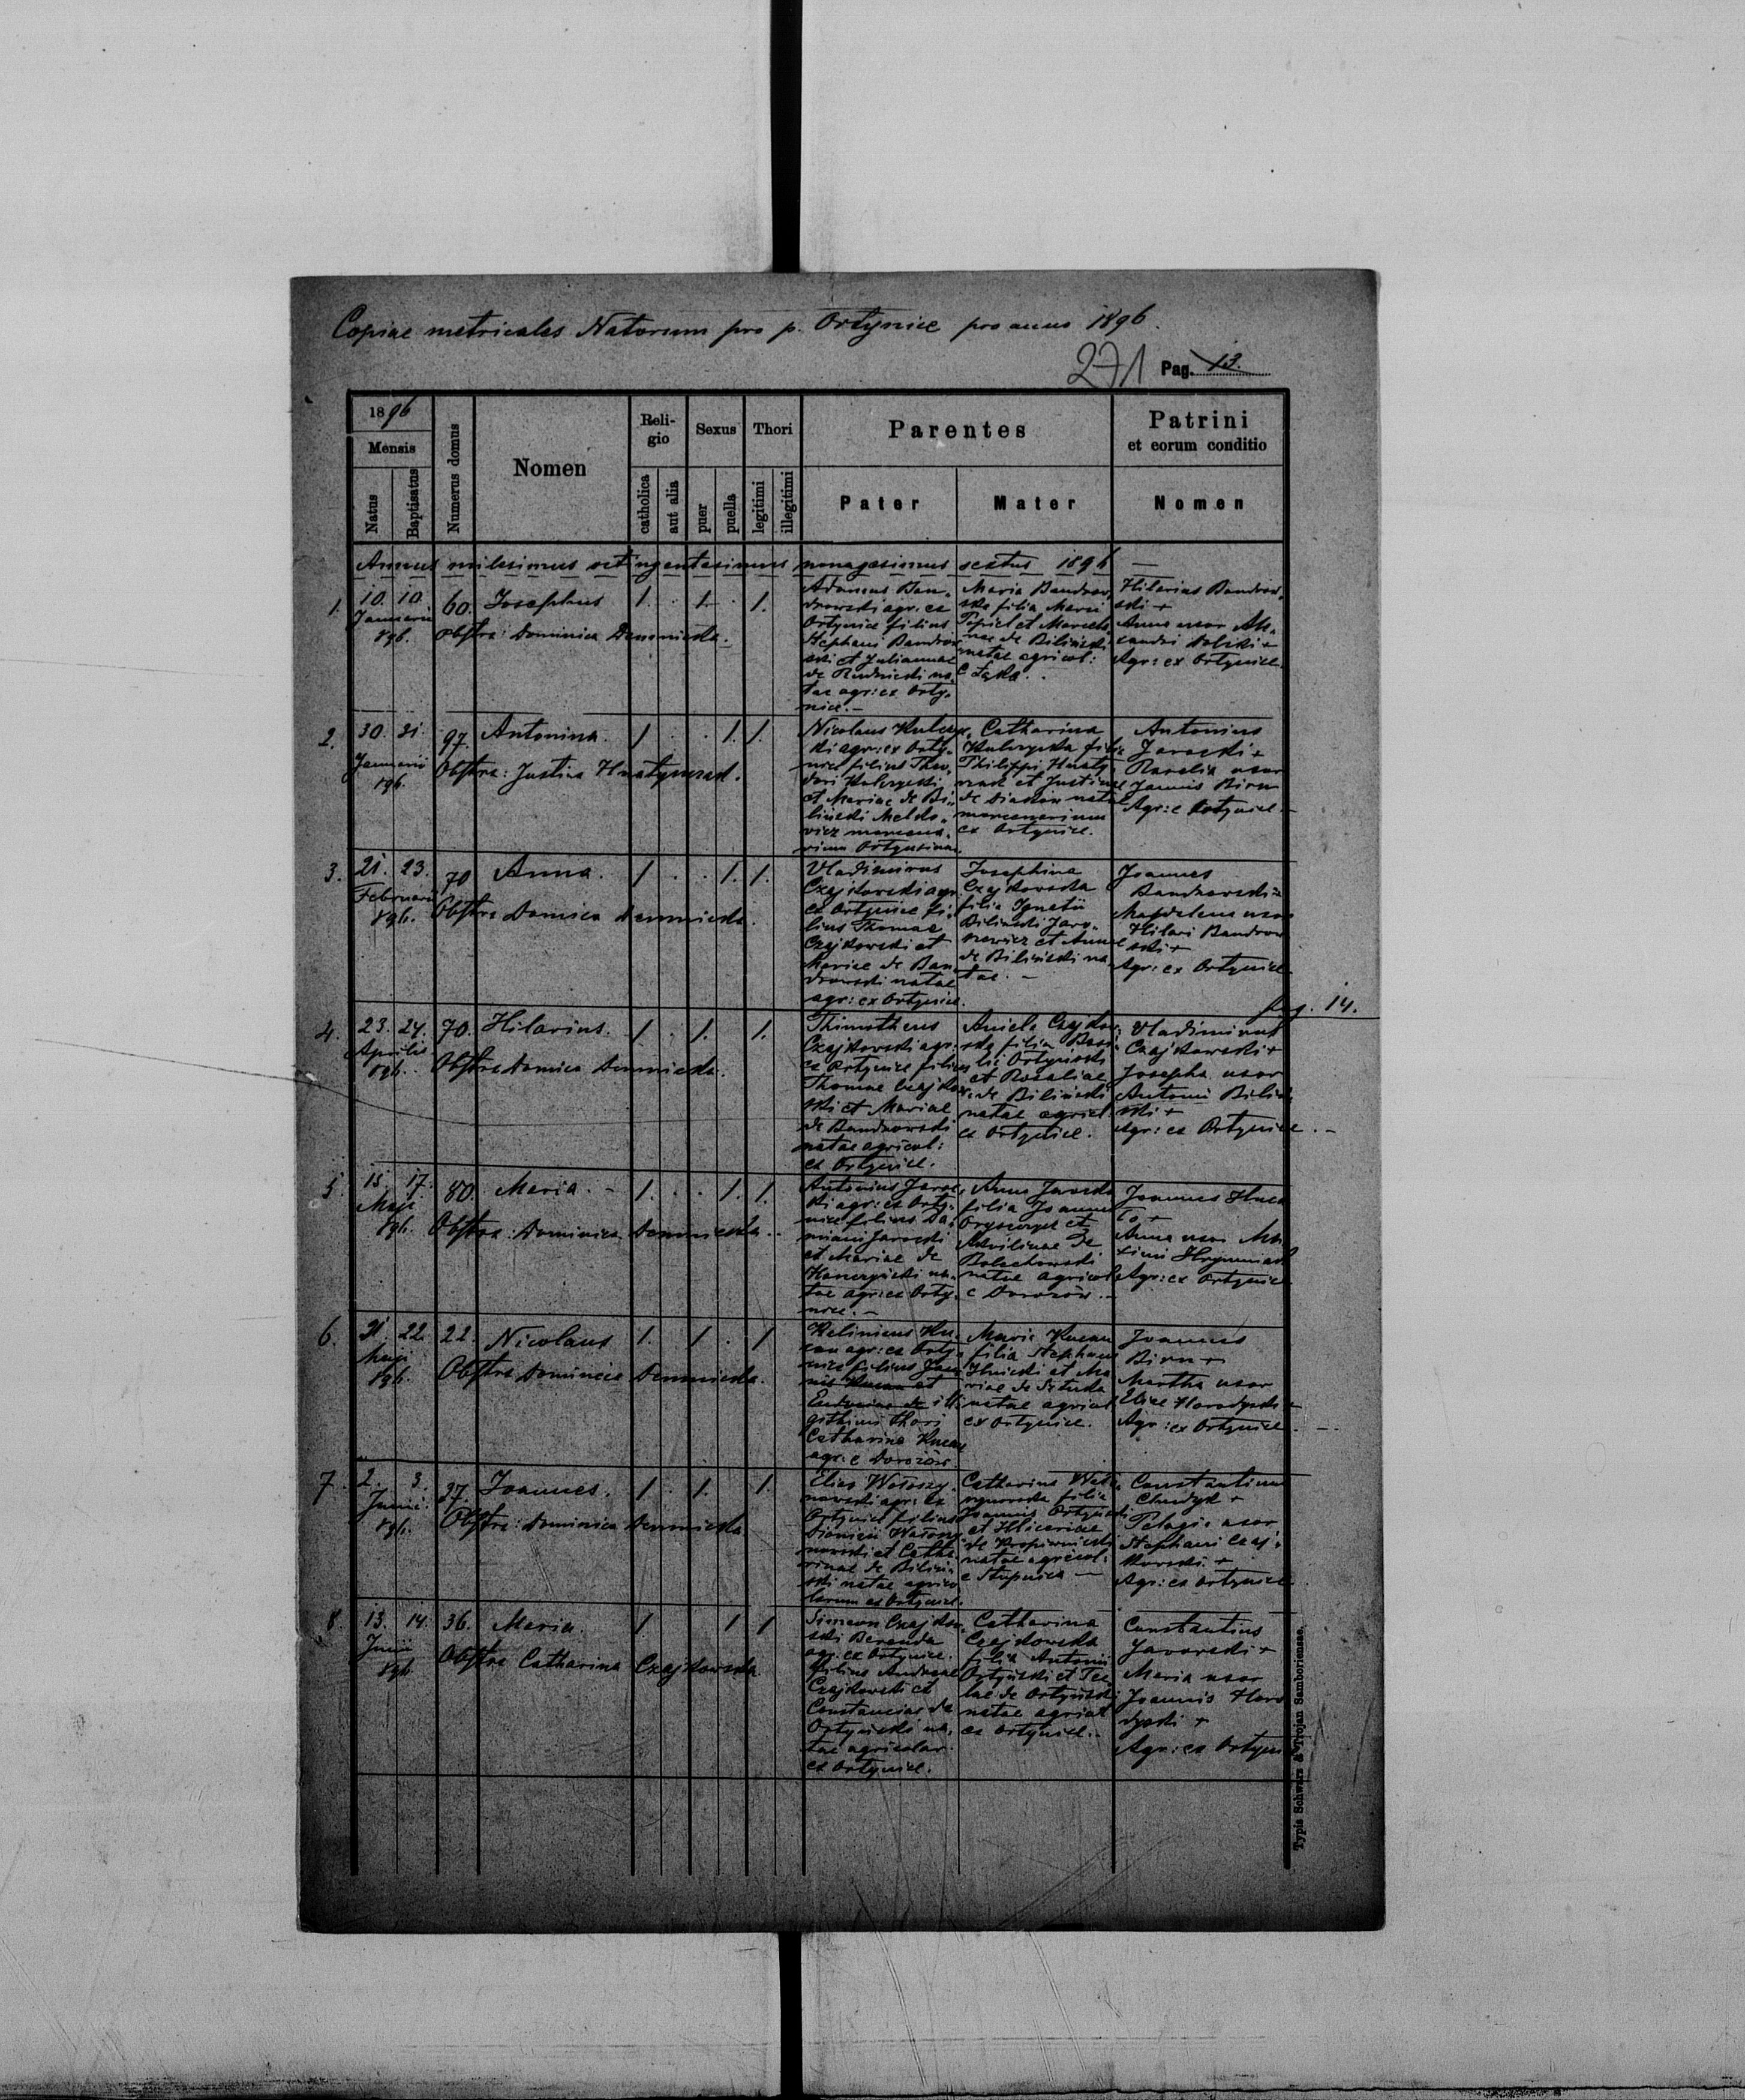 Copiae metricales Natorum pro p. Ortynice pro anno 1896.
271 Pag. 13.
1896
Mensis
Natus
Baptisatus
Numerus domus
Nomen
Reli-
gio
catholica
aut alia
Sexus
puer
puella
Thori
legitimi
illegitimi
Parentes
Pater
Mater
Patrini
et eorum conditio
Nomen
Annus milesimus octingentesimus nonagesimus sextus 1896 —
1. 10. 10. 60. Josephus 1. . 1. . 1.
Januarii
896.
Obstre: Dominica Demnicka.
Adamus Ban-
drowski agr. ex
Ortynice filius
Stephani Bandrow
ski et Juliannae
de Rudnicki na-
tae agr: ex Orty-
nice. —
Maria Bandrow-
ska filia Marci
et Marcela
nae de Biliński
natae agricol:
e Łąka.
Hilarius Bandrow-
ski +
Anna uxor Ale-
xandri +
Agr: ex Ortynice.
2. 30. 31. 97. Antonina. 1 . . 1. 1.
Januarii
896.
Obstre: Justina Hnatymrad.
Nicolaus Kulczyc
ki agr: ex Orty-
nice filius Theo-
dori Kulczycki
et Mariae de Bi-
liński
Ortynice
Catharina
Kulczycka filia
Philippi Hnaty-
et Justinae
de natae
ex Ortynice.
Antonius
Jaroski +
Rosalia uxor
Joannis Birn
Agr: e Ortynice. —
3. 21. 23. 70 Anna. 1 . . 1. 1.
Februarii
896.
Obstre Domica Demnicka.
Vladimirus
Czajkowski agr.
ex Ortynice fi-
lius Thomae
Czajkowski et
Mariae de Ban-
drowski natae
agr: ex Ortynice.
Josephina
Czajkowska
filia Ignatii
Biliński Jaro-
et Annae
de Biliński na-
tae. —
Joannes
Bandrowski +
Magdalena uxor
Hilari Bandrow
ski +
Agr: ex Ortynice
pag. 14.
4. 23. 24. 70. Hilarius. 1 . 1. 1.
Aprilis
896.
Obstre Domica Demnicka.
Thimotheus
Czajkowski agr:
ex Ortynice filius
Thomae Czajkow
ski et Mariae
de Bandrowski
natae agricol:
ex Ortynice.
Aniela Czajkow-
ska filia Basi-
lii Ortyński
et Rosaliae
de Biliński
natae agricol.
ex Ortynice.
Vladimirus
Czajkowski +
Josepha uxor
Antonii Biliń
ski +
Agr: ex Ortynice. —
5. 15. 17. 80. Maria. — 1. . . 1. 1.
Maji
896.
Obstre: Dominica Demnicka.
Antonius Jaros
ki agr: ex Orty-
nice filius Da-
miani Jaroski
et Mariae de
na-
tae agr: ex Orty-
nice. —
Anna Jaroska
filia Joannis
et
de
natae agricol
e Dorożów. —
Joannes
+
Anna uxor
Agr: ex Ortynice
6. 21. 22. 22. Nicolaus 1. 1 . 1
Maji
896.
Obstre Dominica Demnicka.
Ku-
can agr: ex Orty-
nice filius Joan
nis Kucan et
illi
githimi thori
Catharina Kucan
agr: e Dorożów
Maria Kucan
filia Stephani
et Ma
riae de
natae agricol
ex Ortynice.
Joannes
Birn +
Martha uxor
Eliae Horodyski +
Agr: ex Ortynice. —
7. 2. 3. 37. Joannes. 1 . 1. 1.
Junii
896.
Obstre: Dominica Demnicka
Elias Wołoszy-
nowski agr: ex
Ortynice filius
Dionisii Wołoszy-
nowski et Catha
rinae de Biliń-
ski natae agrico
larum ex Ortynice.
Catharina Woło-
szynowska filia
Joannis Ortyński
et
de Kropiwnicki
natae agricol:
e Stupnica —
Constantinus
+
Pelagia uxor
Stephani Czaj-
kowski +
Agr: ex Ortynice
8. 13. 14. 36. Maria. 1 1 1
Junii
896
Obstre Catharina Czajkowska
Simeon Czajkow-
ski Berenda
agr. ex Ortynice.
filius Andreae
Czajkowski et
Constanciae de
Ortyński na-
tae agricolar.
ex Ortynice.
Catharina
Czajkowska
filia Antonii
Ortyński et Te-
clae de Ortyński
natae agricol
ex Ortynice. —
Constantius
Javorski +
Maria uxor
Joannis Horo
dyski +
Agr: ex Ortyn
Typis Schwarz & Trojan Samboriensse.